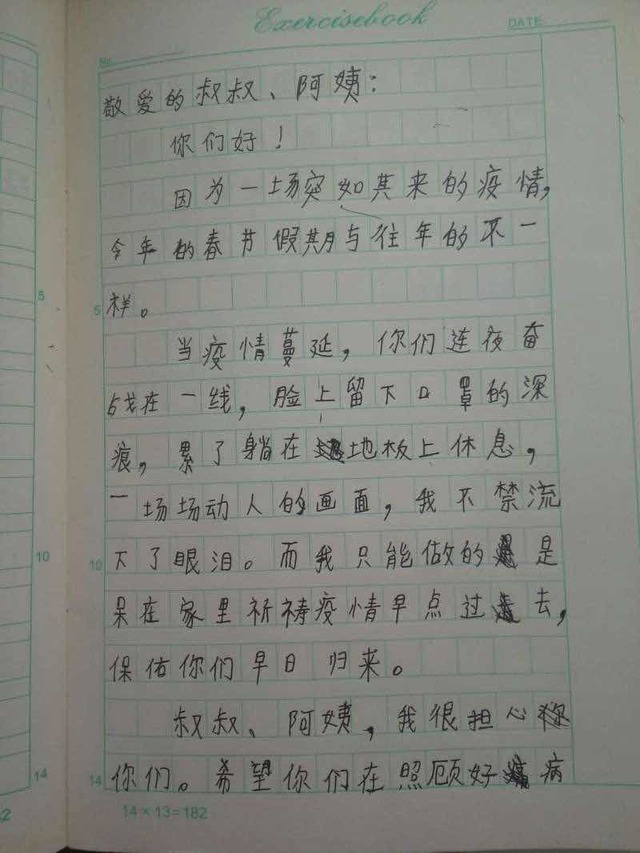 Exercisebook
No.
DATE
敬爱的叔叔、阿姨：
你们好！
因为一场突如其来的疫情，
今年的春节假期与往年的不一
样。
5
5
当疫情蔓延，你们连夜奋
战在一线，脸上留下口罩的深
痕，累了躺在地板上休息，
一场场动人的画面，我不禁流
10
10
下了眼泪。而我只能做的是
呆在家里祈祷疫情早点过去，
保佑你们早日归来。
叔叔、阿姨，我很担心
14
14
你们。希望你们在照顾好病
14×13=182